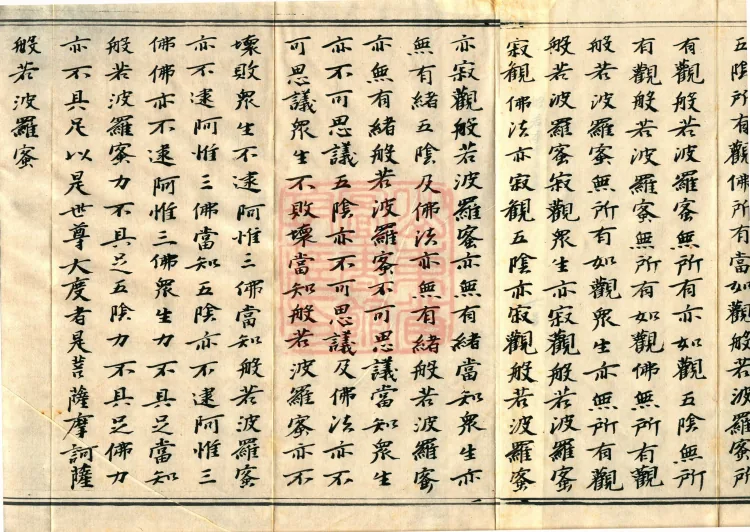 五陰所有觀佛所有當如觀般若波羅蜜所
有觀般若波羅蜜無所有亦如觀五陰無所
有觀般若波羅蜜無所有如觀佛無所有觀
般若波羅蜜無所有如觀眾生亦無所有觀
般若波羅蜜寂觀眾生亦寂觀般若波羅蜜
寂觀佛法亦寂觀五陰亦寂觀般若波羅蜜
亦寂觀般若波羅蜜亦無有緒當知眾生亦
無有緒五陰及佛法亦無有緒般若波羅蜜
亦無有緒般若波羅蜜不可思議當知眾生
亦不可思議五陰亦不可思議及佛法亦不
可思議眾生不敗壞當知般若波羅蜜亦不
壞敗眾生不逮阿惟三佛當知般若波羅蜜
亦不逮阿惟三佛當知五陰亦不逮阿惟三
佛佛亦不逮阿惟三佛眾生力不具足當知
般若波羅蜜力不具足五陰力不具足佛力
亦不具足以是世尊大度者是菩薩摩訶薩
般若波羅蜜